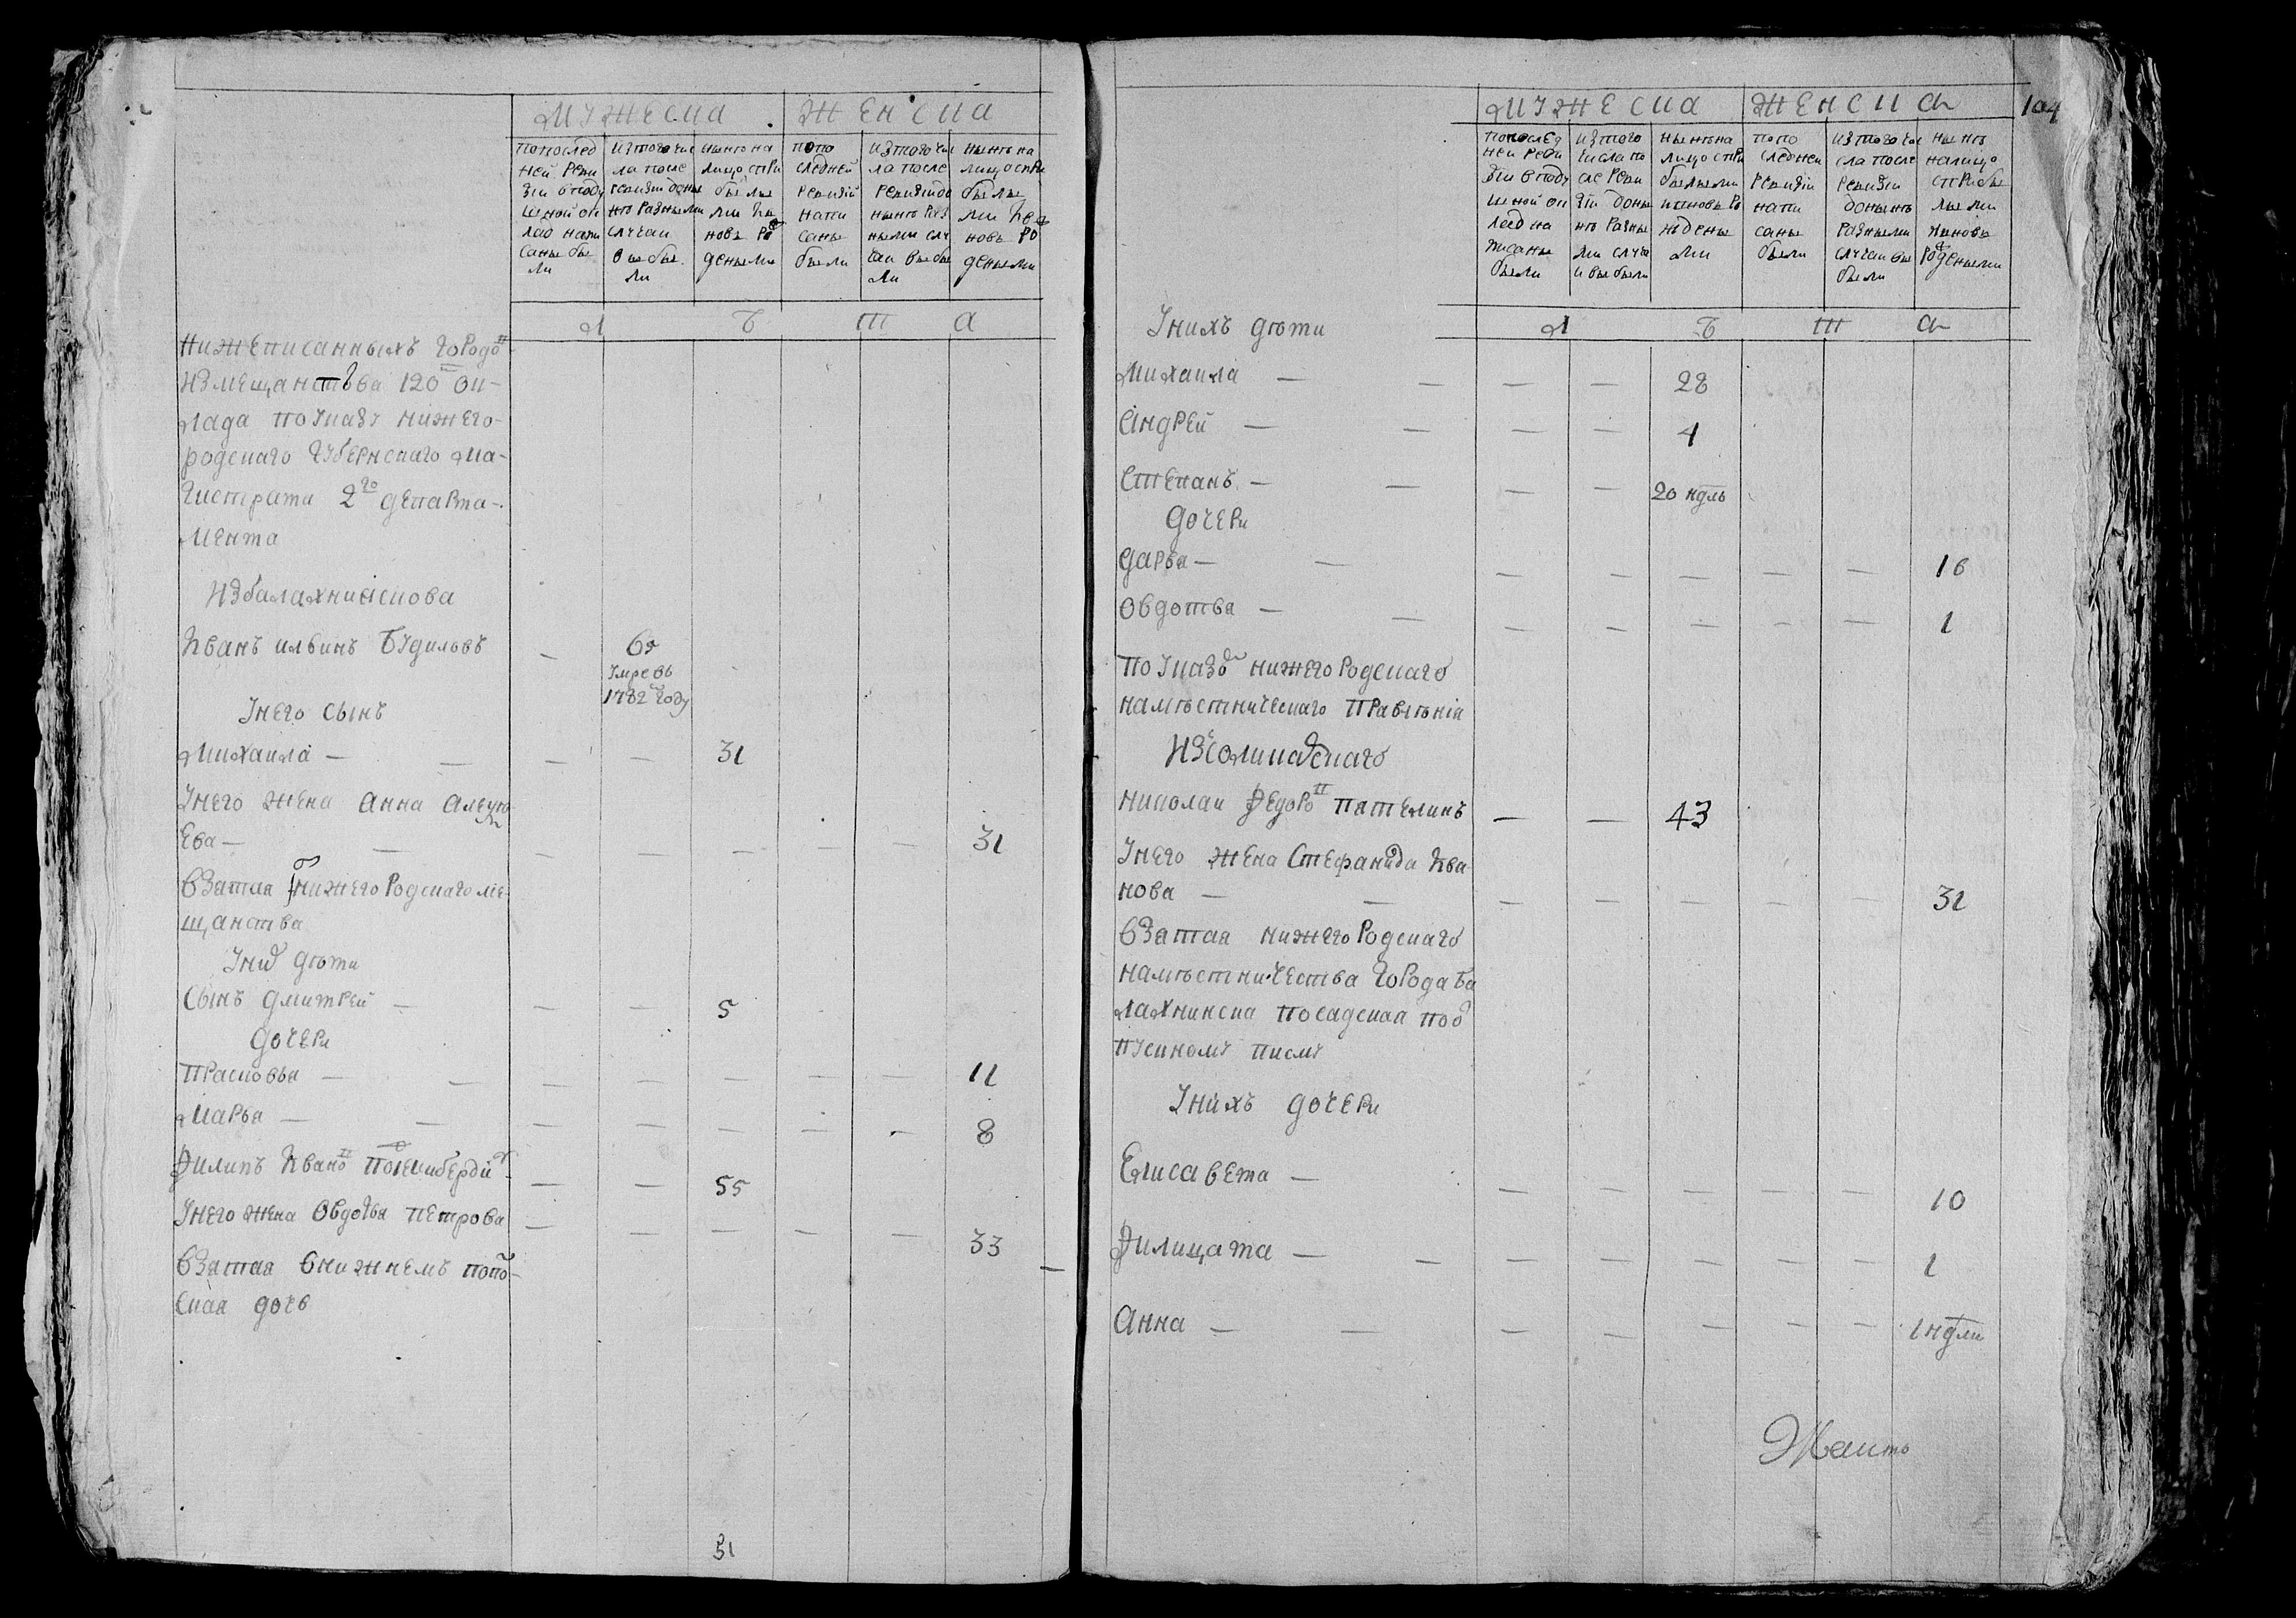 мужеска
женска
попослед
ней реви
зіи вподу
шной ок
лад напи
саны бы
ли
изтого чис
ла после
ревизіи доны
нѣ разными
случаи
выбы
ли
нынѣ на
лицо спри
былы
ми и
новь ро
деными
попо
следней
ревизіи
напи
саны
были
изтого чис
ла после
ревизіи до
нынѣ раз
ными слу
чаи выбы
ли
нынѣ на
лицо спри
былы
ми и
новь ро
деными
л ѣ т а
нижеписанныхъ городо
измещанства 120 ок
лада поуказу нижего
родскаго губернскаго ма
гистрата 2го департа
мента
избалахнинскова
иванъ ильинъ будиловъ — 65
умре въ
1782 году
унего сынъ
михаила — — — — 31
унего жена анна алексѣ
ева — — — — — — — 31
взятая нижегородскаго ме
щанства
уни дѣти
сынъ дмитрей — — — 5
дочери
прасковья — — — — — — — 11
марья — — — — — — — 8
филипъ ивано — — 55
унего жена овдотья петрова — — — — — 33
взятая внижнемъ попо
ская дочь
31
104
мужеска
женска
попослед
ней реви
зіи вподу
шной ок
лад на
писаны
были
изтого
числа по
сле реви
зіи доны
нѣ разны
ми случа
и выбыли
нынѣ на
лицо спри
былыми
иновь ро
ждены
ми
попо
следней
ревизіи
напи
саны
были
изтого чи
сла после
ревизіи
донынѣ
разными
случаи вы
были
нынѣ
налицо
сприбы
лыми
иновь
родеными
л ѣ т а
унихъ дѣти
михаила — — — — 28
андрей — — — — 4
степанъ — — — — 20 ндль
дочери
дарья — — — — — — — 16
овдотья — — — — — — — 1
поуказу нижегородскаго
намѣстническаго правлѣнія
николаи федоро пателинъ — — 43
унего жена стефанида ива
нова — — — — — — — 31
взятая нижегородскаго
намѣстничества города ба
лахнинска посадская по
пускному писму
унихъ дочери
елисавета — — — — — — 10
филицата — — — — — — — 1
анна — — — — — — — 1 ндли